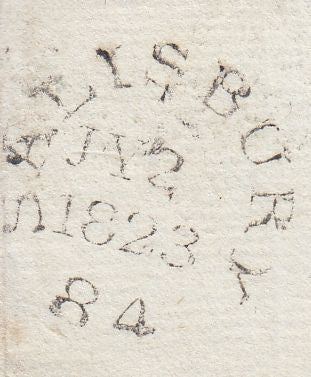 SALISBURY
JY 2
1823
84